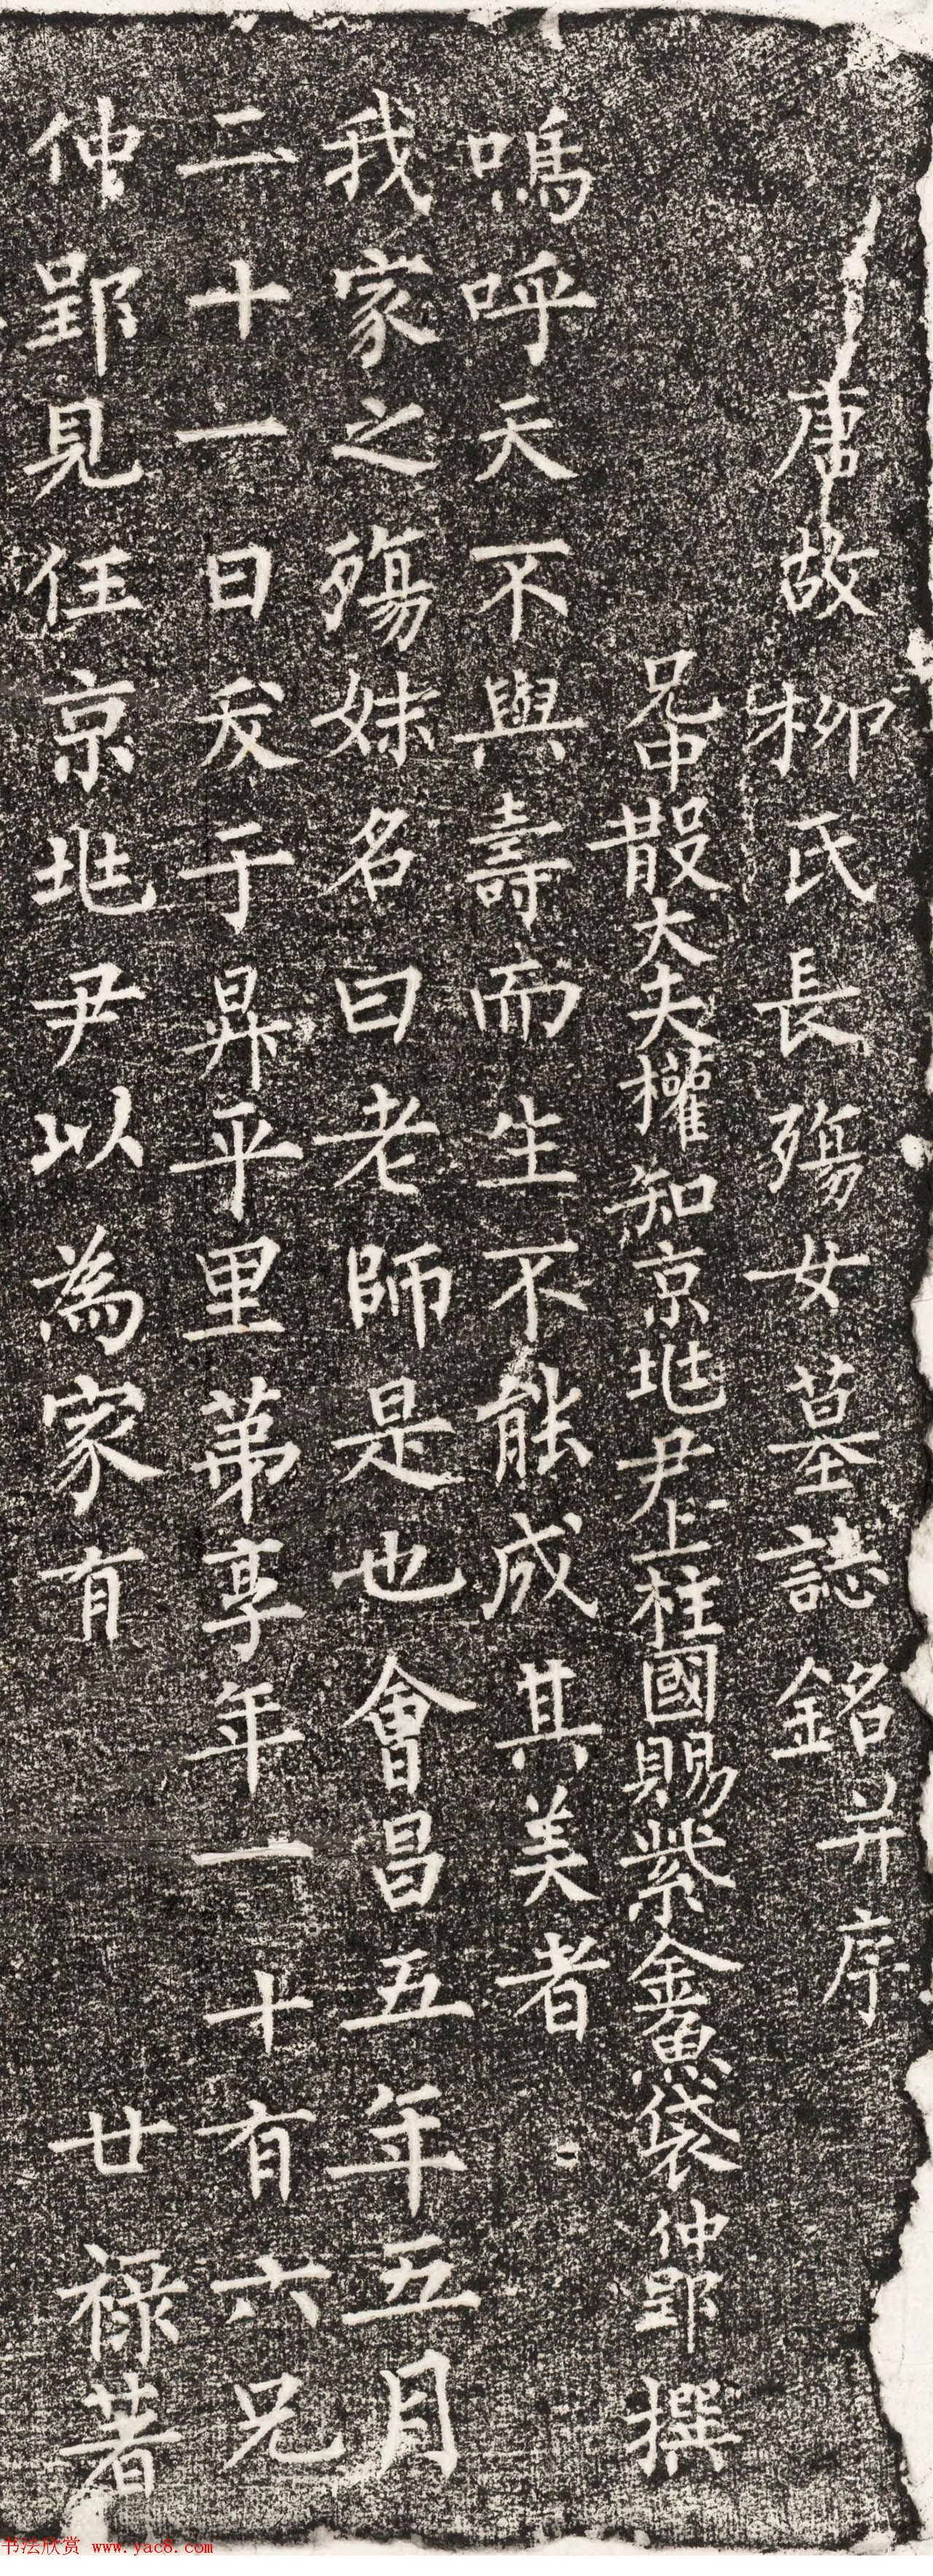 唐故柳氏長殤女墓誌銘并序
兄中散大夫權知京地尹上柱國賜紫金魚袋仲郢撰
嗚呼天不與壽而生不能成其美者
我家之殤妹名曰老師是也會昌五年五月
二十一日夭于昇平里第享年一十有六兄
仲郢見任京地尹以為家有廿禄著
书法欣赏 www.yac8.com